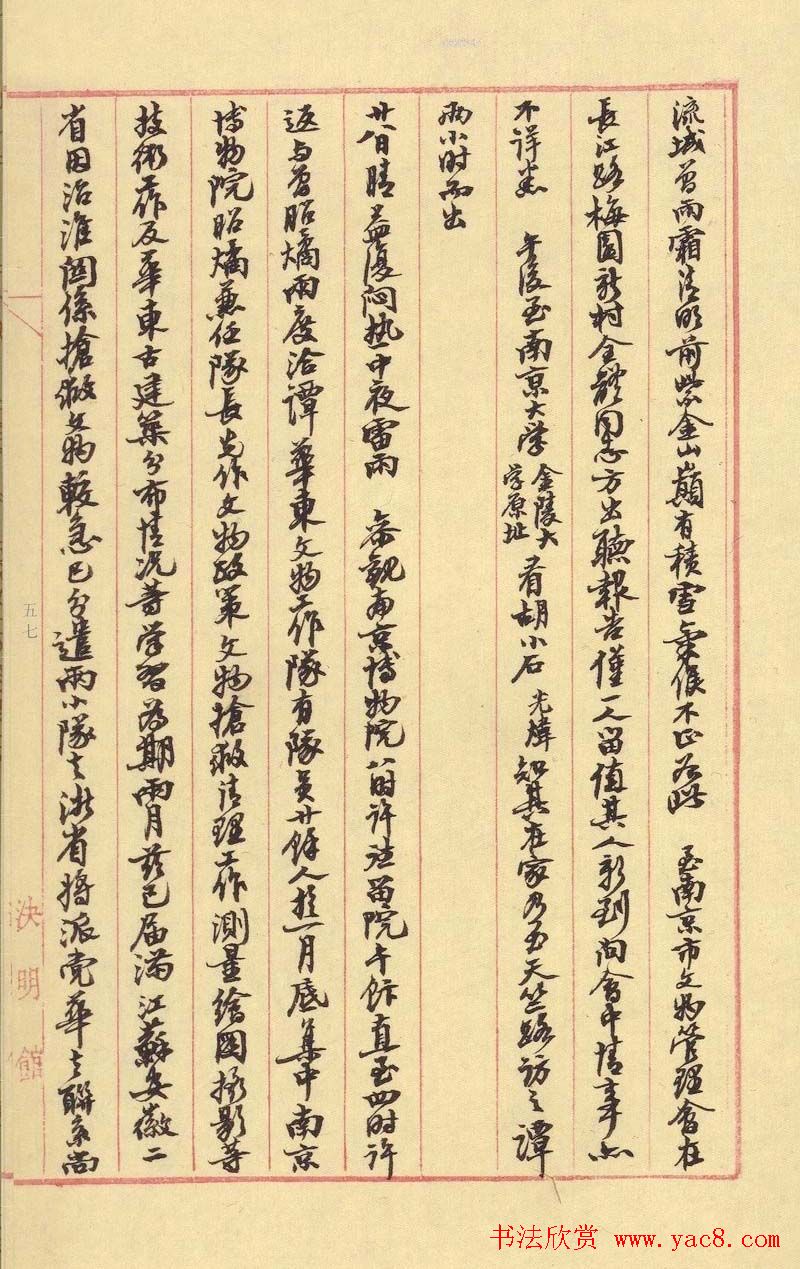 流域曾雨霜清明前紫金山巔有積雪氣候不正若此　至南京市文物管理會在
長江路梅園新村全體同志方出聽報告僅一人留值其人新到問會中情事亦
不詳悉　午後至南京大学金陵大学原址看胡小石光煒知其在家乃至天竺路訪之譚
兩小时而出
廿八日晴益復闷热中夜雷雨　參觀南京博物院八时许注留院午飰直至四时许
返与曾昭燏兩度洽譚華東文物工作隊有隊員廿餘人於一月底集中南京
博物院昭燏兼任隊長先作文物政策文物搶救清理工作測量繪圖攝影等
技術工作及華東古建築分布情况等学習为期兩月兹已届滿江蘇安徽二
省因治淮関係搶救文物較急已分遣兩小隊去浙省將派党華去聯系尚
五七
決明館
书法欣赏 www.yac8.com